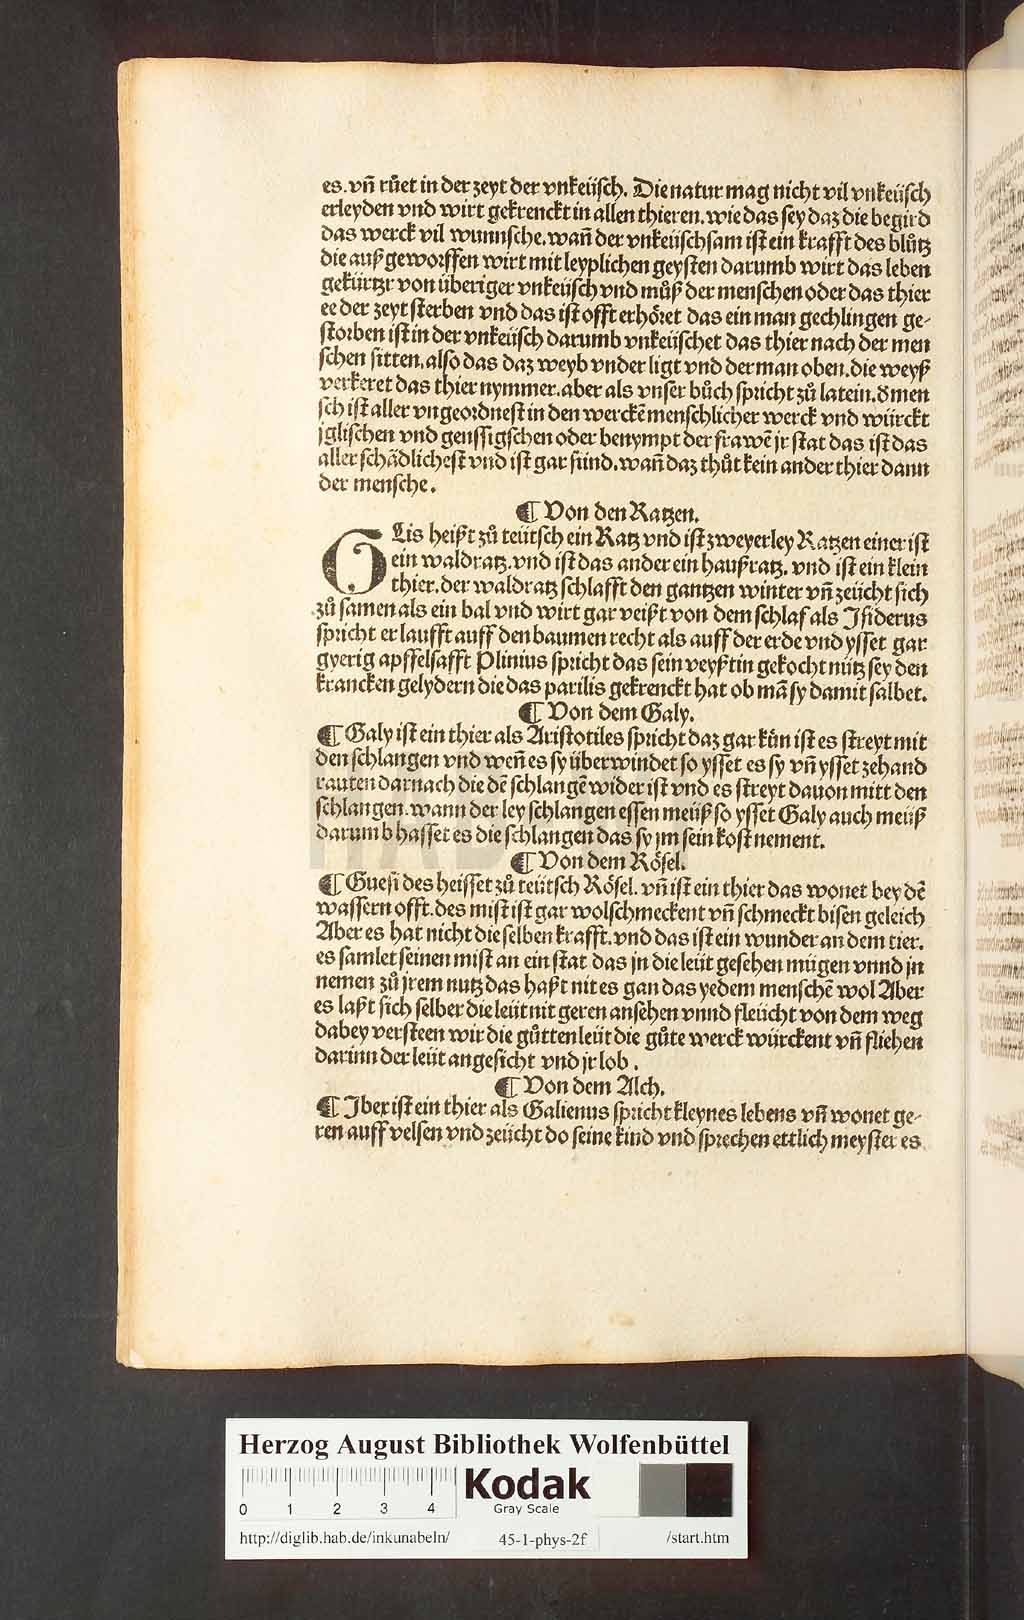 es. vñ růet in der zeyt der vnkeüsch. Die natur mag nicht vil vnkeüsch
erleyden vnd wirt gekrenckt in allen thieren. wie das sey daz die begird
das werck vil wunnsche. wañ der vnkeüsch sam ist ein krafft des blůtz
die auß geworffen wirt mit leyplichen geysten darumb wirt das leben
gekürtzt von überiger vnkeüsch vnd můß der menschen oder das thier
ee der zeyt sterben vnd das ist offt erhöret das ein man gechlingen ge-
storben ist in der vnkeüsch darumb vnkeüschet das thier nach der men
schen sitten. also das daz weyb vnder ligt vnd der man oben. die weyß
verkeret das thier nymmer. aber als vnser bůch spricht zů latein. d̕ men
sch ist aller vngeordnest in den werckē menschlicher werck vnd würckt
jglischen vnd genssigschen oder benympt der frawē jr stat das ist das
aller schädlichest vnd ist gar sünd. wañ daz thůt kein ander thier dann
der mensche.
¶ Von den Ratzen.
GLis heißt zů teütsch ein Ratz vnd ist zweyerley Ratzen einer ist
ein waldratz. vnd ist das ander ein haußratz. vnd ist ein klein
thier. der waldratz schlafft den gantzen winter vñ zeücht sich
zů samen als ein bal vnd wirt gar veißt von dem schlaf als Isiderus
spricht er laufft auff den baumen recht als auff der erde vnd ysset gar
gyerig apffelsafft Plinius spricht das sein veyßtin gekocht nütz sey den
krancken gelydern die das parilis gekrenckt hat ob mā sy damit salbet.
¶ Von dem Galy.
¶ Galy ist ein thier als Aristotiles spricht daz gar kün ist es streyt mit
den schlangen vnd weñ es sy überwindet so ysset es sy vñ ysset zehand
rauten darnach die dē schlangē wider ist vnd es streyt dauon mitt den
schlangen. wann der ley schlangen essen meüß so ysset Galy auch meüß
darumb hasset es die schlangen das sy jm sein kost nement.
¶ Von dem Rösel.
¶ Guesi des heisset zů teütsch Rösel. vñ ist ein thier das wonet bey dē
wassern offt. des mist ist gar wolschmeckent vñ schmeckt bisen geleich
Aber es hat nicht die selben krafft. vnd das ist ein wunder an dem tier.
es samlet seinen mist an ein stat das jn die leüt gesehen mügen vnnd jn
nemen zů jrem nutz das haßt nit es gan das yedem menschē wol Aber
es laßt sich selber die leüt nit geren ansehen vnnd fleücht von dem weg
dabey versteen wir die gůtten leüt die gůte werck würckent vñ fliehen
darinn der leüt angesicht vnd jr lob.
¶ Von dem Alch.
¶ Ibex ist ein thier als Galienus spricht kleynes lebens vñ wonet ge-
ren auff velsen vnd zeücht do seine kind vnd sprechen ettlich meyster es
Herzog August Bibliothek Wolfenbüttel
0 1 2 3 4
Kodak
Gray Scale
http://diglib.hab.de/inkunabeln/ 45-1-phys-2f /start.htm